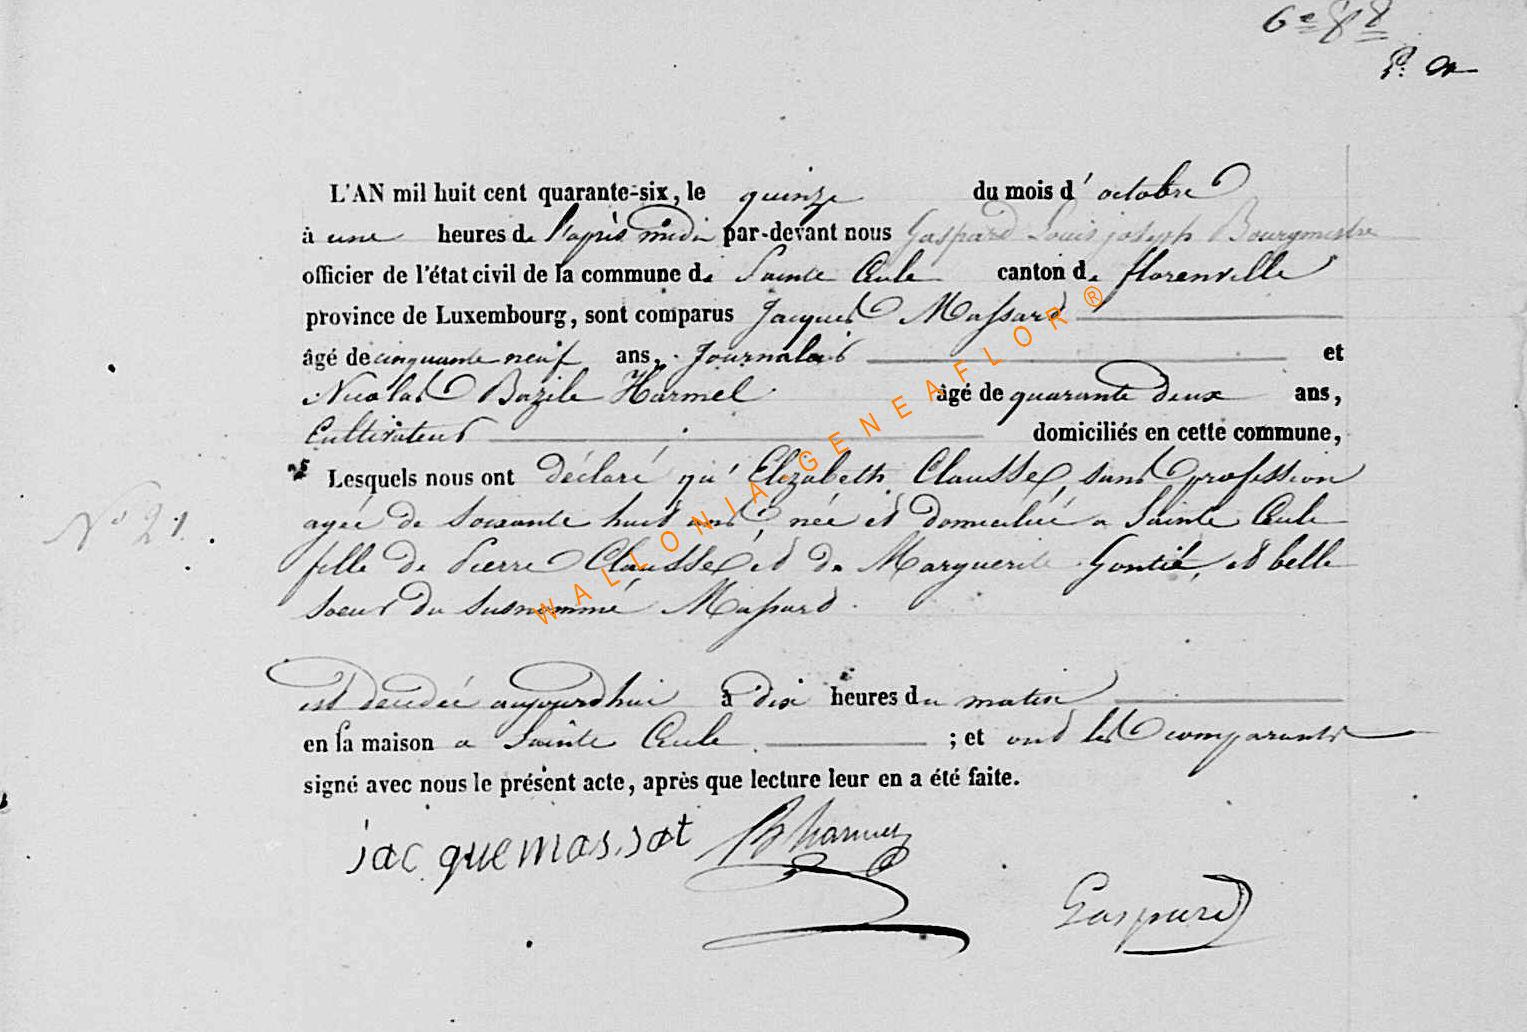 6e 88
L'AN mil huit cent quarante-six, le quinze du mois d' octobre
à une heures de l'après midi par-devant nous Gaspard Louis joseph Bourgmestre
officier de l'état civil de la commune de Sainte Cecile canton de florenville
province de Luxembourg, sont comparus Jacques Massard
âgé de cinquante neuf ans, Journalier et
Nicolas Bazile Harmel âgé de quarante deux ans,
Cultivateur domiciliés en cette commune,
Lesquels nous ont déclaré qu' Elizabeth Clausse, sans profession
agée de soixante huit ans, née et domiciliée a Sainte Cecile
N° 21.
fille de Pierre Clausse et de Marguerite Gontié, et belle
soeur du susnommé Massard.
est decedée aujourdhui à dix heures du matin
en sa maison a Sainte Cecile ; et ont les comparants
signé avec nous le présent acte, après que lecture leur en a été faite.
jacquemassat NB harmel
Gaspard
WALLONIA-GENEAFLOR ®